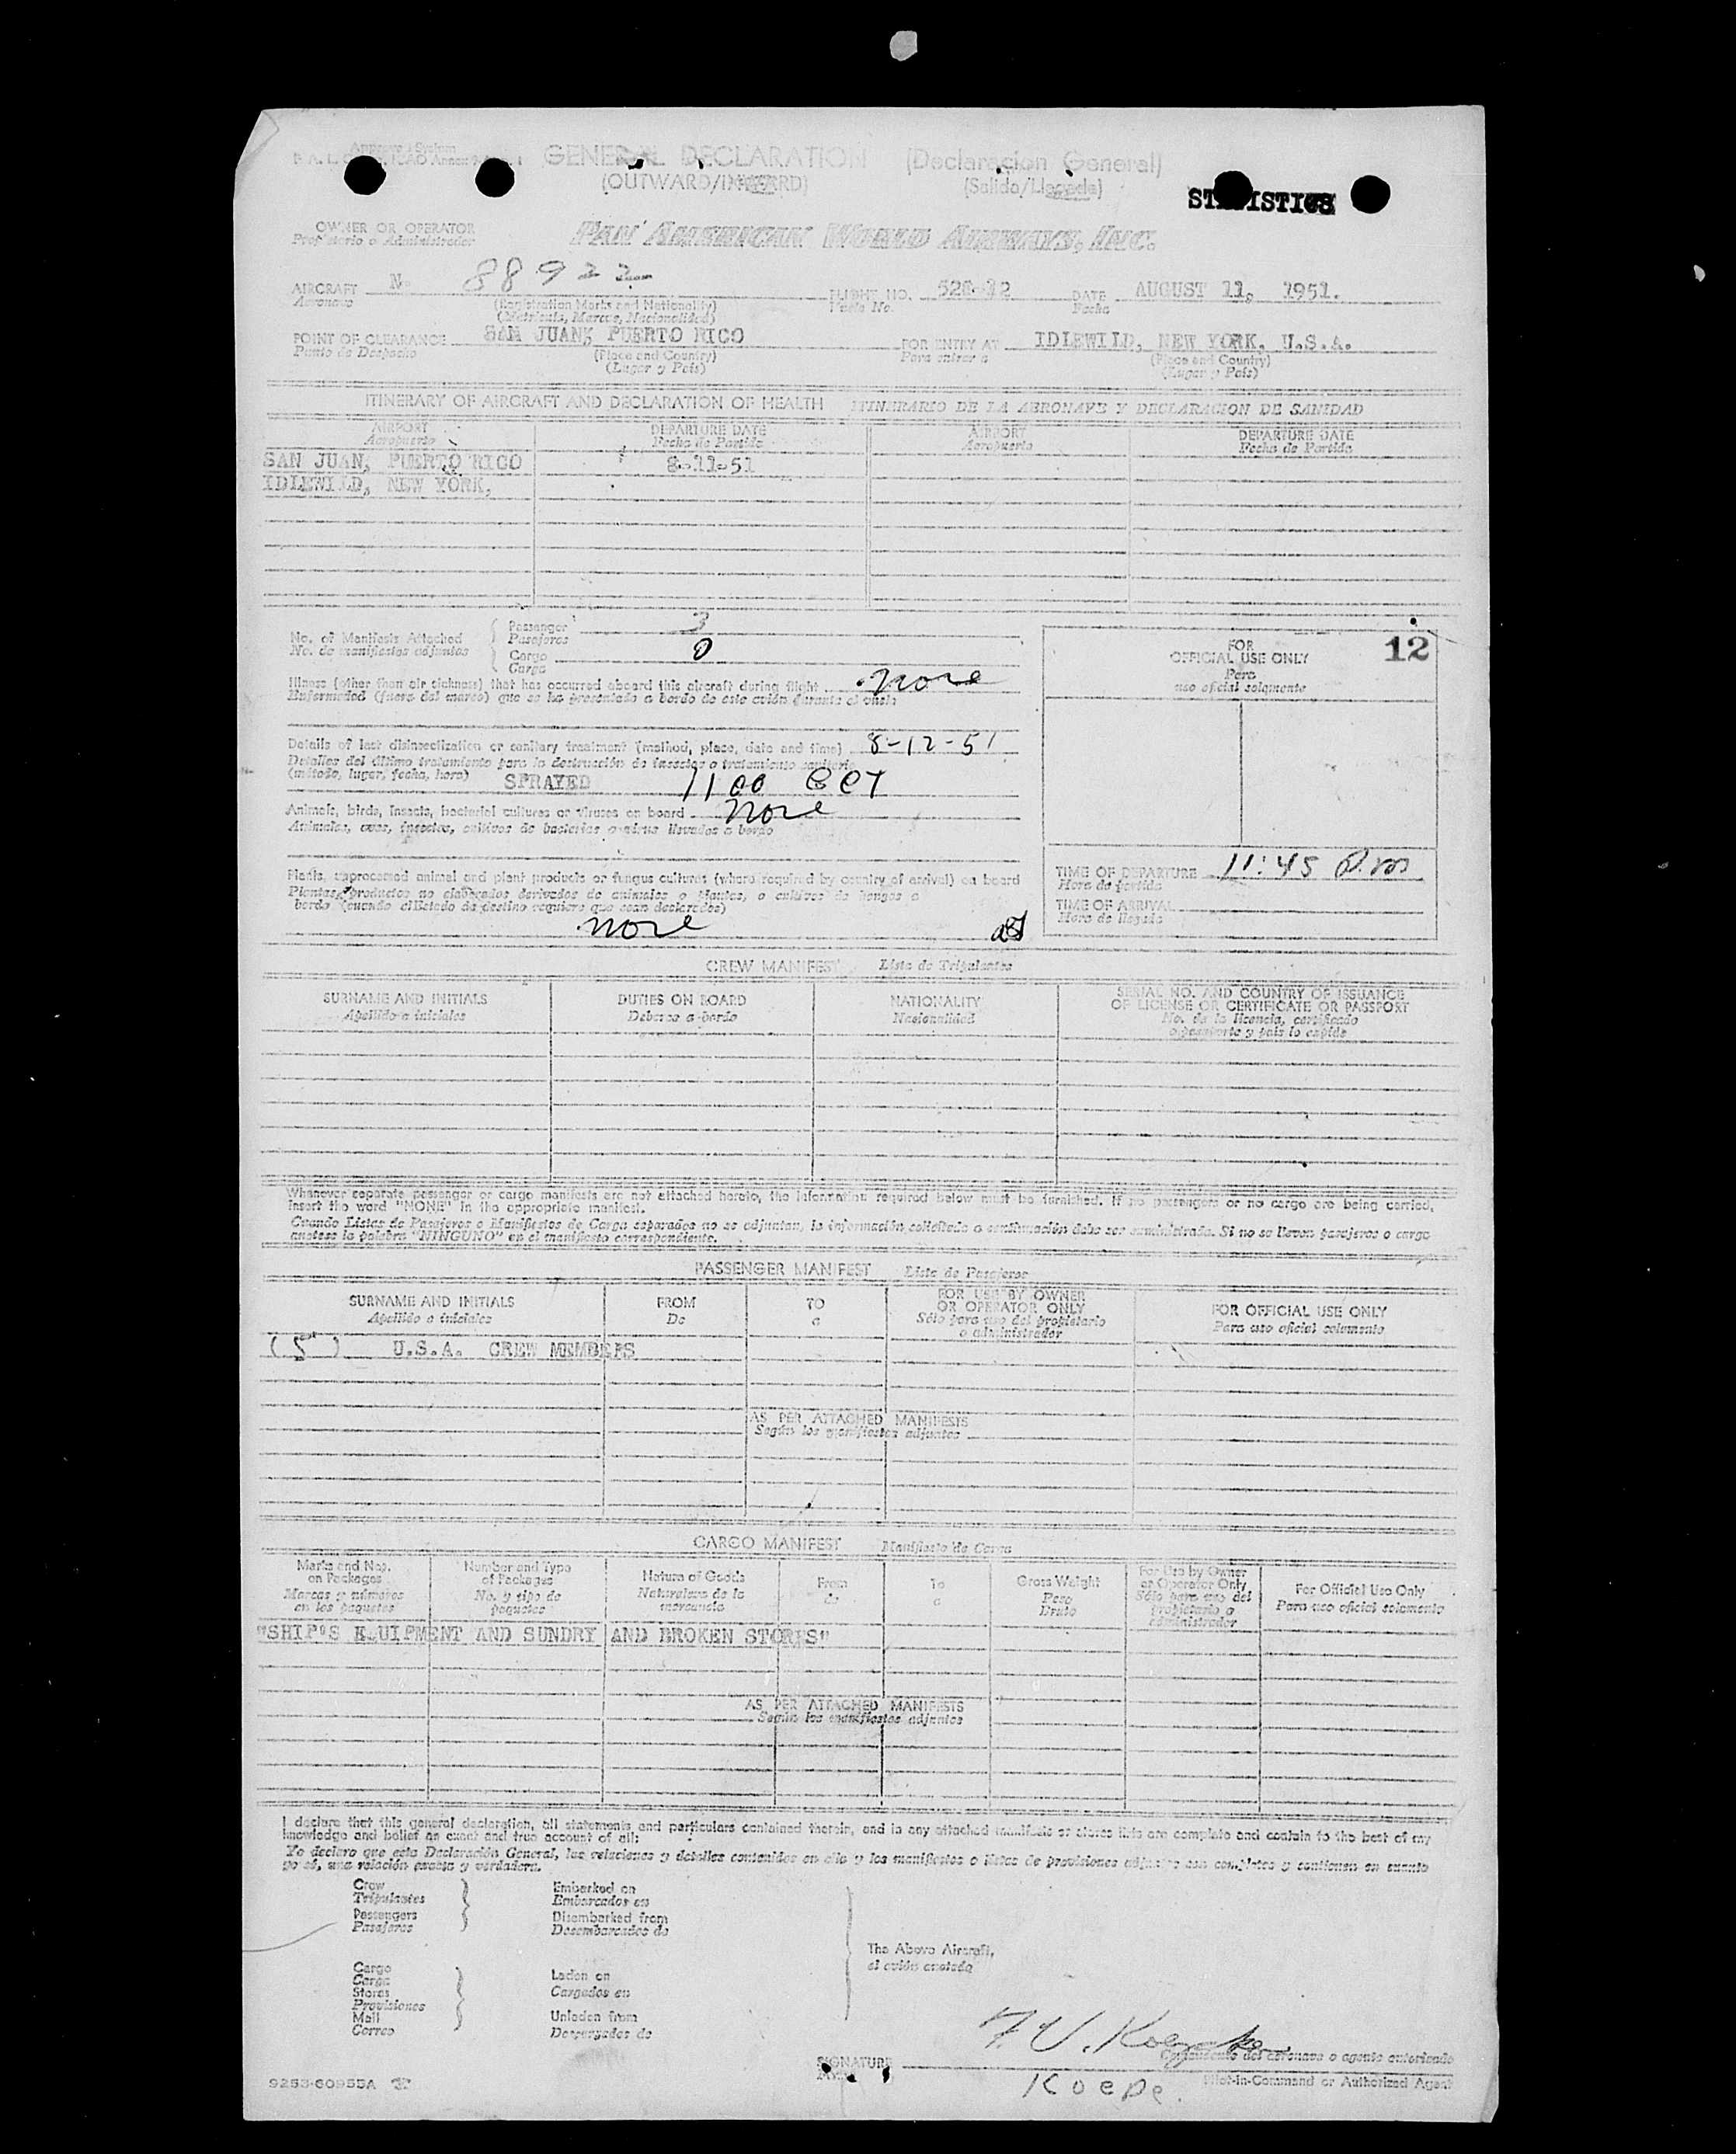 GENERAL DECLARATION (Declaracion General)
(OUTWARD/INWARD) (Salida/Llegada)
STATISTICS
OWNER OR OPERATOR PAN AMERICAN WORLD AIRWAYS, INC.
Propietario o Administrador
AIRCRAFT N- 88922 FLIGHT NO. DATE AUGUST 11, 1951.
Aeronave (Registration Marks and Nationality) Vuelo No. Fecha
(Matricula, Marcas, Nacionalidad)
POINT OF CLEARANCE SAN JUAN, PUERTO RICO FOR ENTRY AT IDLEWILD, NEW YORK, U.S.A.
Punto de Despacho (Place and Country) Para entrar a (Place and Country)
(Lugar y Pais) (Lugar y Pais)
ITINERARY OF AIRCRAFT AND DECLARATION OF HEALTH ITINERARIO DE LA AERONAVE Y DECLARACION DE SANIDAD
AIRPORT DEPARTURE DATE AIRPORT DEPARTURE DATE
Aeropuerto Fecha de Partida Aeropuerto Fecha de Partida
SAN JUAN, PUERTO RICO 8-11-51
IDLEWILD, NEW YORK,
No. of Manifests Attached Passenger 3
No. de manifiestos adjuntos Pasajeros
Cargo 0
Carga
FOR 12
OFFICIAL USE ONLY
Para
uso oficial solamente
Illness (other than air sickness) that has occurred aboard this aircraft during flight none
Enfermedad (fuera del mareo) que se ha presentado a bordo de este avión durante el
Details of last disinsectization or sanitary treatment (method, place, date and time) 8-12-51
Detalles del último tratamiento para la destrucción de insectos o tratamiento sanitario
(método, lugar, fecha, hora) SPRAYED 1100 GCT
Animals, birds, insects, bacterial cultures or viruses on board none
Animales, aves, insectos, cultivos de bacterias o virus llevados a bordo
Plants, unprocessed animal and plant products or fungus cultures (where required by country of arrival) on board
Plantas, productos no elaborados derivados de animales o plantas, o cultivos de hongos a
bordo (cuando el Estado de destino requiera que sean declarados)
none
TIME OF DEPARTURE 11:45 P.m
Hora de partida
TIME OF ARRIVAL
Hora de llegada
CREW MANIFEST Lista de Tripulantes
SURNAME AND INITIALS DUTIES ON BOARD NATIONALITY SERIAL NO. AND COUNTRY OF ISSUANCE
OF LICENSE OR CERTIFICATE OR PASSPORT
Apellido e iniciales Deberes a bordo Nacionalidad No. de la licencia, certificado
o pasaporte y pais lo expide
Whenever separate passenger or cargo manifests are not attached hereto, the information required below must be furnished. If no passengers or no cargo are being carried,
insert the word "NONE" in the appropriate manifest.
Cuando Listas de Pasajeros o Manifiestos de Carga separados no se adjuntan, la información solicitada a continuación debe ser suministrada. Si no se llevan pasajeros o carga
anótese la palabra "NINGUNO" en el manifiesto correspondiente.
PASSENGER MANIFEST Lista de Pasajeros
SURNAME AND INITIALS FROM TO FOR USE BY OWNER
OR OPERATOR ONLY FOR OFFICIAL USE ONLY
Apellido e iniciales De a Sólo para uso del propietario
o administrador Para uso oficial solamente
(5) U.S.A. CREW MEMBERS
AS PER ATTACHED MANIFESTS
Según los manifiestos adjuntos
CARGO MANIFEST Manifiesto de Carga
Marks and Nos.
on Packages
Marcas y números
en los paquetes
Number and Type
of Packages
No. y tipo de
paquetes
Nature of Goods
Naturaleza de la
mercancía
From
de
To
a
Gross Weight
Peso
Bruto
For Use by Owner
or Operator Only
Sólo para uso del
propietario o
administrador
For Official Use Only
Para uso oficial solamente
"SHIP'S EQUIPMENT AND SUNDRY AND BROKEN STORES"
AS PER ATTACHED MANIFESTS
Según los manifiestos adjuntos
I declare that this general declaration, all statements and particulars contained therein, and in any attached manifests or stores lists are complete and contain to the best of my
knowledge and belief an exact and true account of all:
Yo declaro que esta Declaración General, las relaciones y detalles contenidos en ella y los manifiestos o listas de provisiones adjuntas son completos y contienen en cuanto
yo sé, una relación exacta y verdadera.
Crew Embarked on
Tripulantes Embarcados en
Passengers Disembarked from
Pasajeros Desembarcados de
The Above Aircraft,
el avión anotado
Cargo
Carga Laden on
Stores Cargados en
Provisiones
Mail Unladen from
Correo Descargados de
SIGNATURE
Comandante del aeronave o agente autorizado
Koepe. Pilot-in-Command or Authorized Agent
9253-60955A